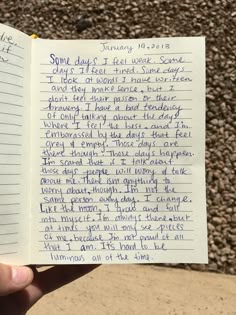 January 19, 2018
Some days I feel weak. Some
days I feel tired. Some days
I look at words I have written
and they make sense, but I
don't feel their passion or their
bravery. I have a bad tendency
of only talking about the days
where I feel the best, and I'm
embarrassed by the days that feel
grey & empty. Those days are
there though. Those days happen.
I'm scared that if I talk about
those days people will worry & talk
about me. There isn't anything to
worry about, though. I'm not the
same person every day. I change.
Like the moon, I grow and fall
into myself. I'm always there, but
at times you will only see pieces
of me, because I'm not proud of all
that I am. It's hard to be
luminous all of the time.